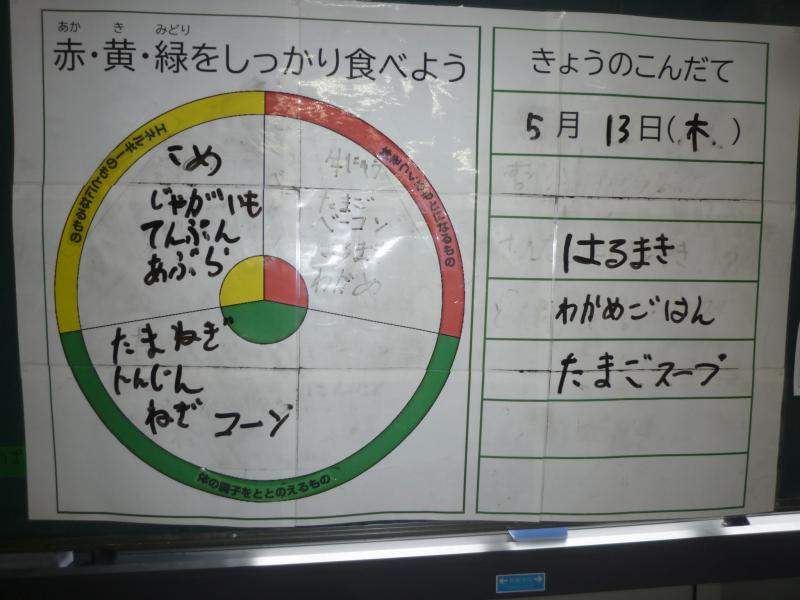 あか き みどり
赤・黄・緑をしっかり食べよう
エネルギーのもとになるもの
こめ
じゃがいも
てんぷん
あぶら
牛にゅう
たまご
ベーコン
わかめ
たまねぎ
にんじん
ねぎ コーン
体の調子をととのえるもの
きょうのこんだて
5月 13日(木)
はるまき
わかめごはん
たまごスープ